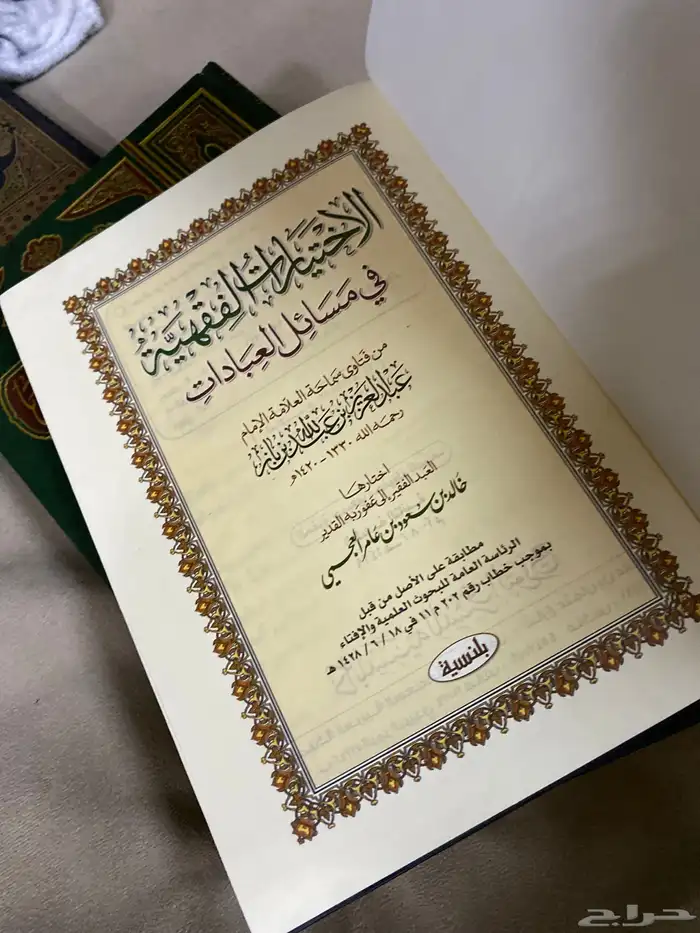 الاختيارات الفقهية
في مسائل العبادات
من فتاوى سماحة العلامة الإمام
عبدالعزيز بن عبدالله بن باز
رحمه الله ١٣٣٠ - ١٤٢٠هـ
اختارها
العبد الفقير إلى عفو ربه القدير
خالد بن سعود بن عامر العجمي
مطابقة على الأصل من قبل
الرئاسة العامة للبحوث العلمية والإفتاء
بموجب خطاب رقم ٢٠٢ م ١١ في ١٨ / ٦ / ١٤٢٨ هـ
بلنسية
حراج